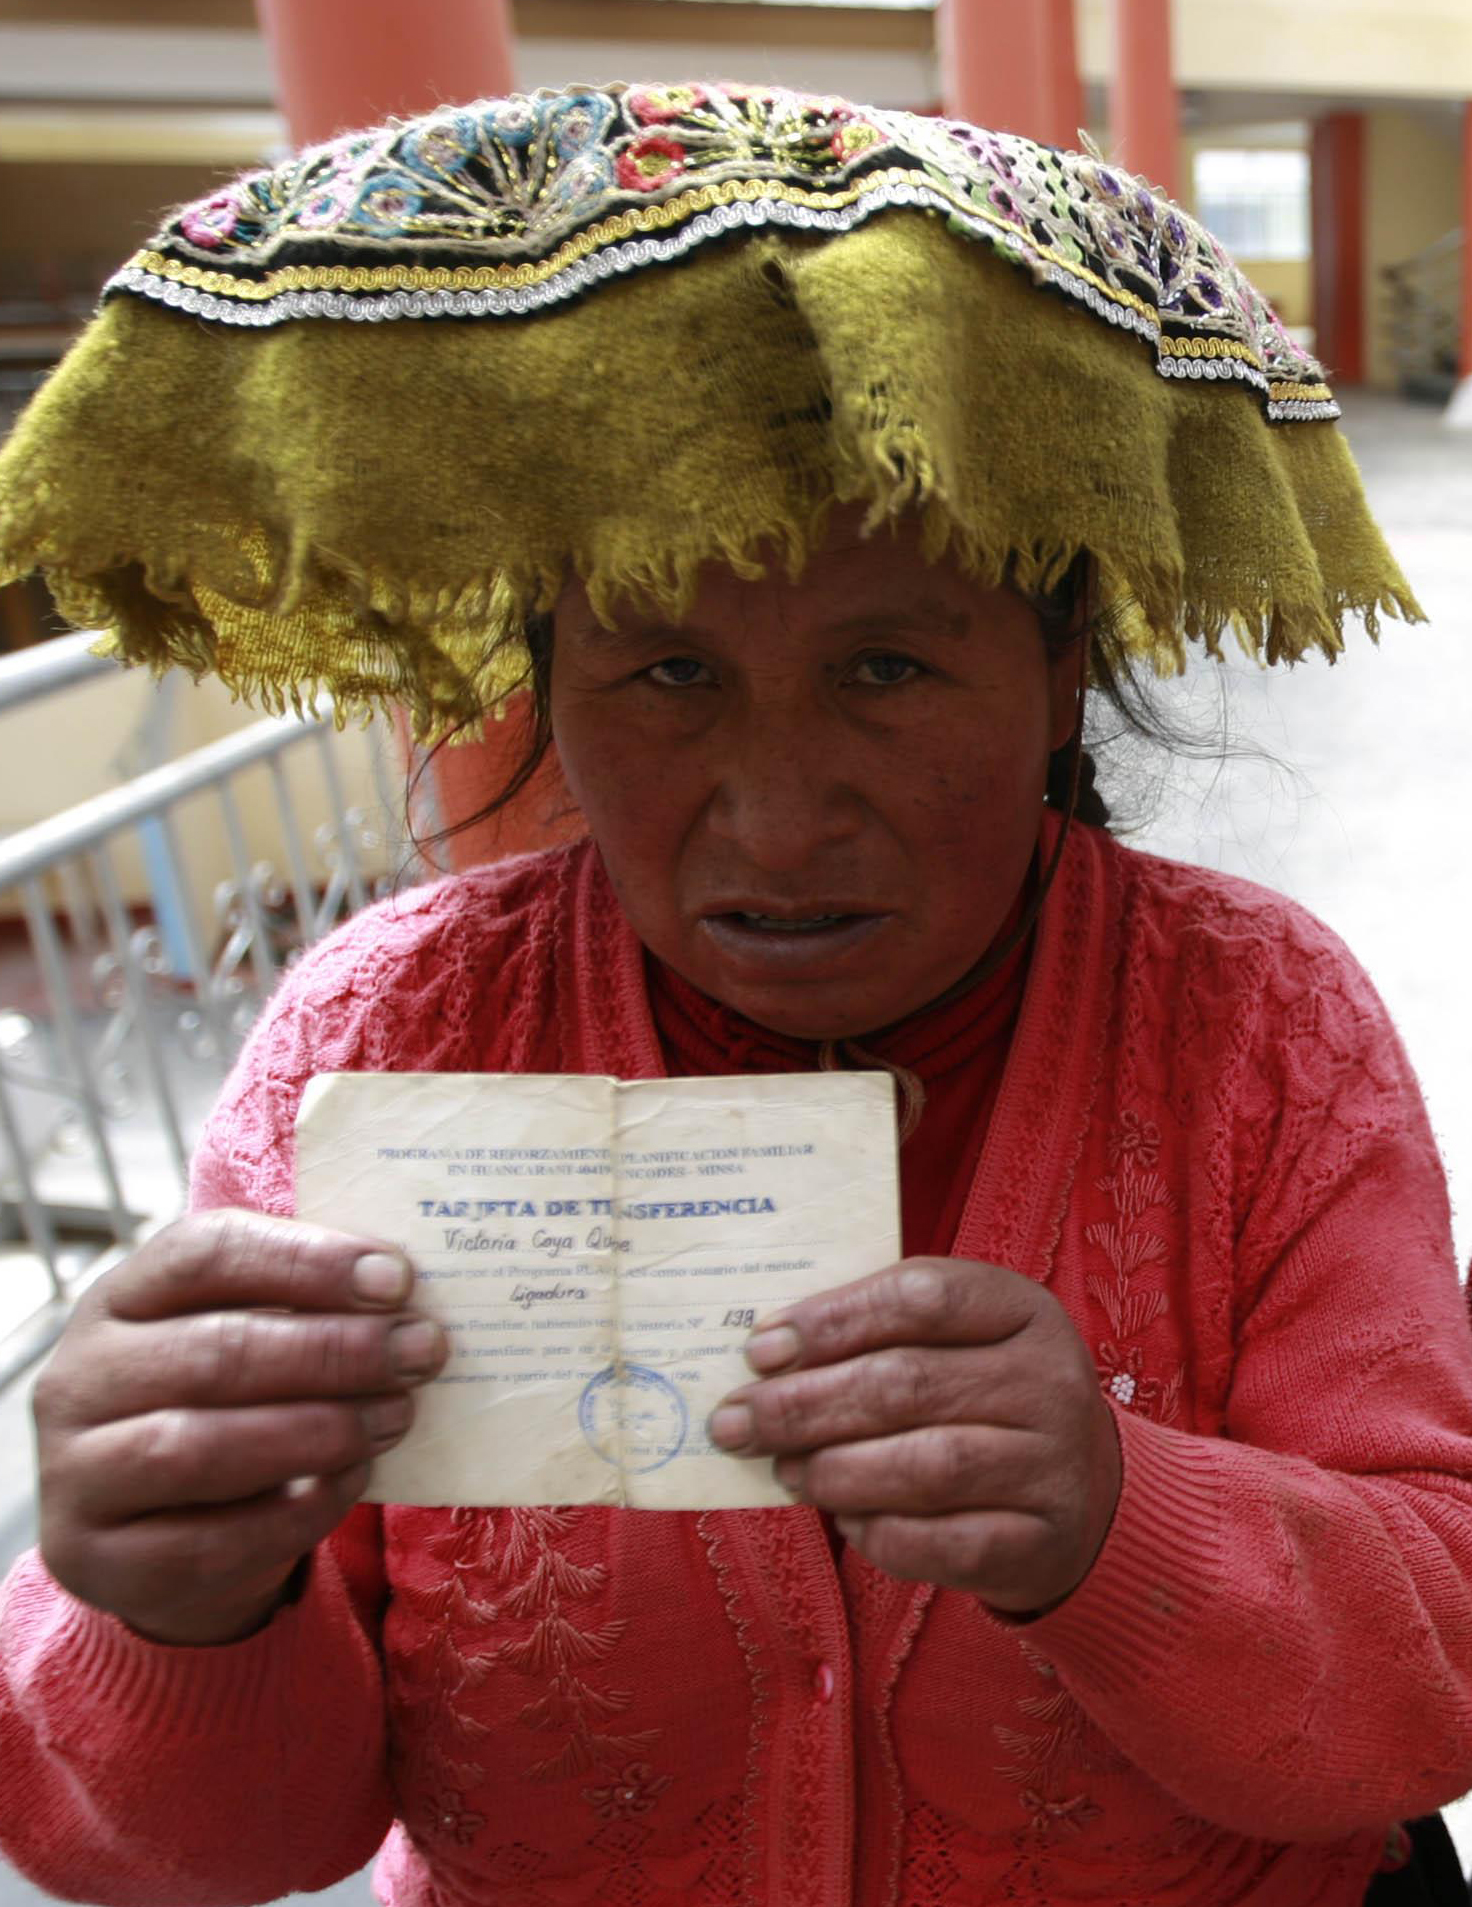 PROGRAMA DE REFORZAMIENT PLANIFICACION FAMILIAR
EN HUANCARANI NCODES - MINSA
TARJETA DE TRANSFERENCIA
Victoria Coya
por el Programa como usuario del metodo:
Ligadura
Familiar, habiendo la historia Nº 198
le transfiere para su y control
a partir del 1996